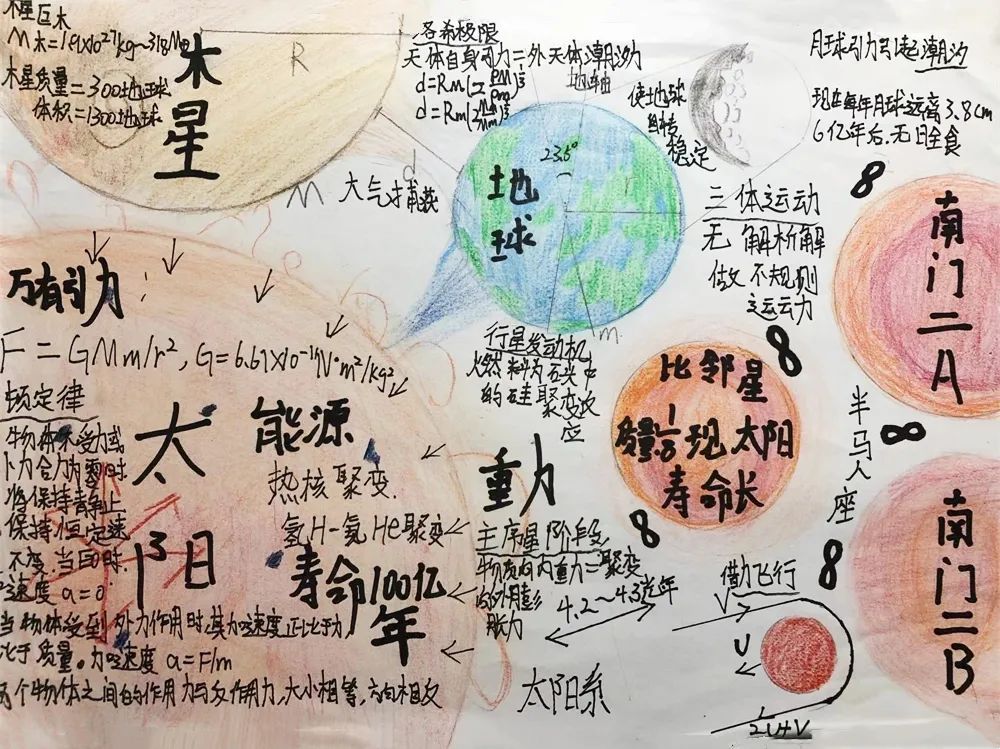 木星巨木
木星质量=300地球
体积=1300地球
R
木
星
洛希极限
天体自身引力=外天体潮汐力
d
M
大气才甫获
地轴
使地球
自转
稳定
23.5°
地
球
r
m
月球引力引起潮汐
现在每年月球远离3.8cm
6亿年后,无日全食
三体运动
无解析解
做不规则
之运动力
8
南
门
二
A
万有引力:
F=GMm/r²,G=6.67×10⁻¹¹N·m²/kg²
顿定律
物体不受力或
合力为零时
将保持静止
保持恒定速
不变.当F=0时.
速度a=0
当物体受到外力作用时,其加速度正比于力
比于质量。加速度a=F/m
两个物体之间的作用力与反作用力,大小相等,方向相反
太
阳
能源
热核聚变.
氢H-氦He聚变
寿命100亿
年
行星发动机
燃料为石头中
的硅聚变反
应
重力
主序星阶段
物质向内重力=聚变
向外膨
胀力
4.2~4.3光年
太阳系
8
比邻星
现太阳
寿命长
8
半
马
人
座
∞
8
借力飞行
V
U
2U+V
南
门
二
B